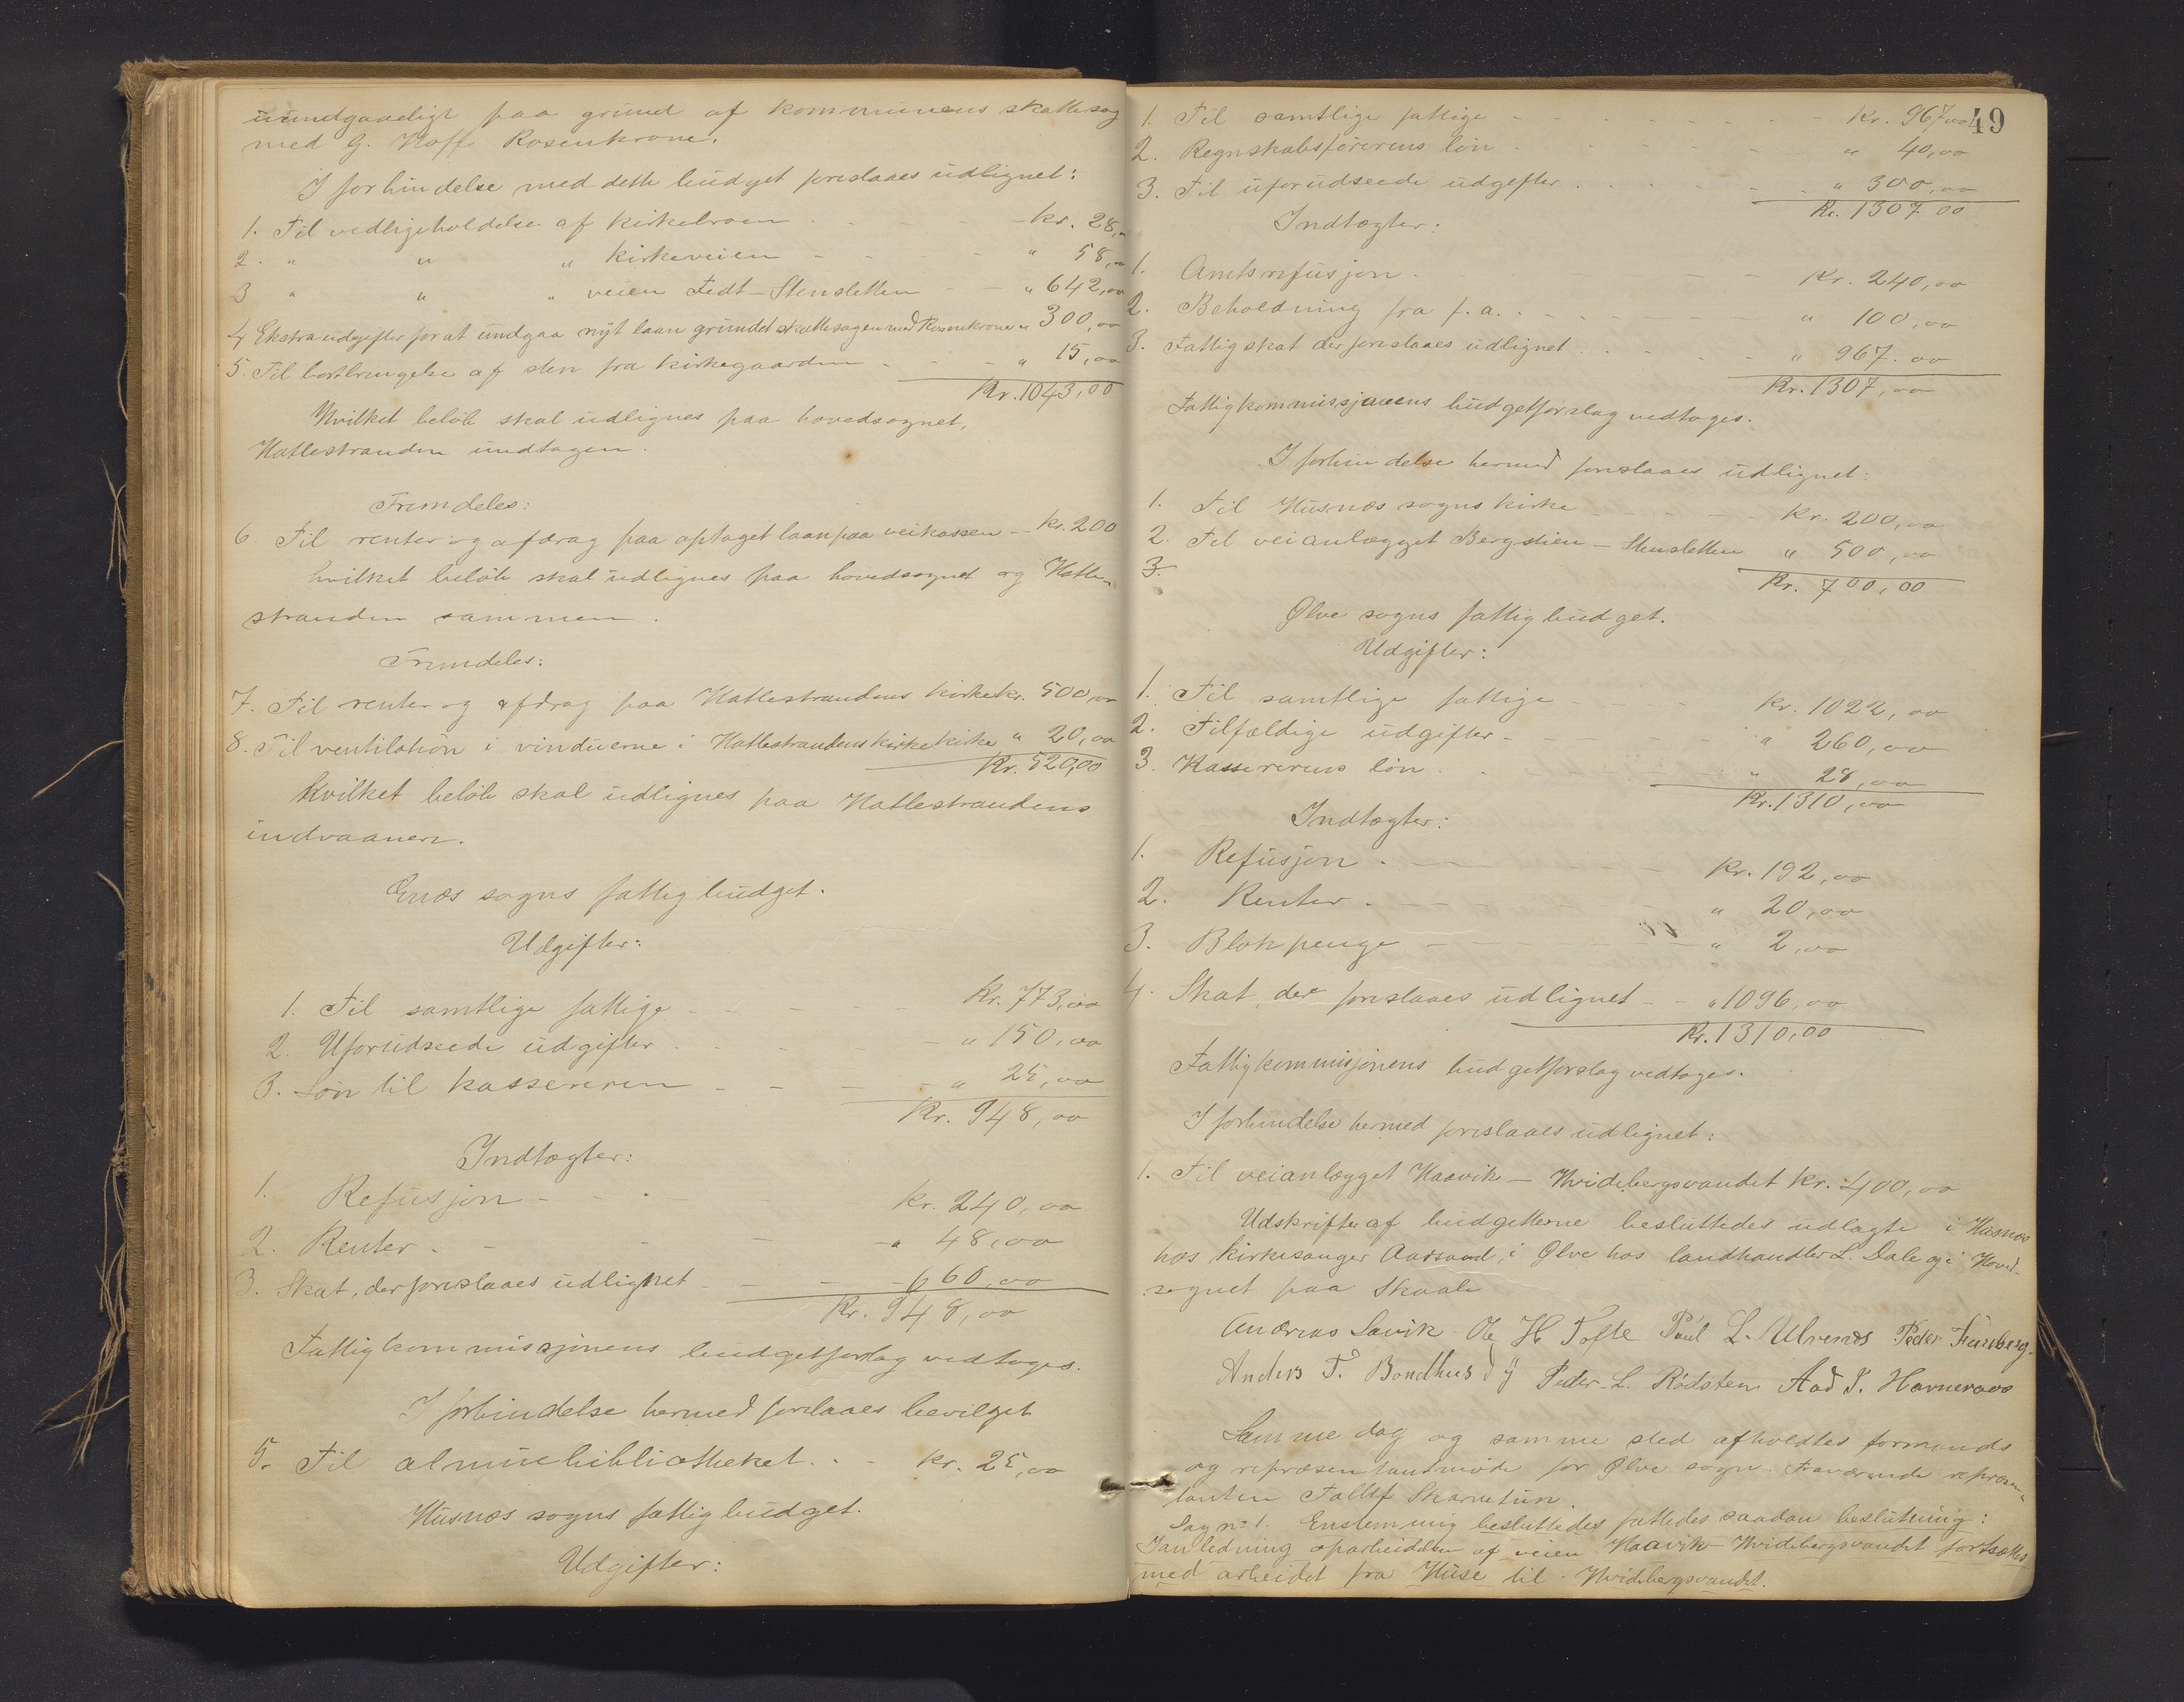 uundgaaeligt paa grund af kommunens skattesag
med G. Hoff Rosenkrone.
I forbindelse med dette budget foreslaaes udlignet:
1. Til vedligeholdelse af kirkebroen - - - kr. 28,
2. " " " kirkeveien - - - " 58,
3 " " " veien Tedt-Stensletten - - " 642,00
4 Ekstraudgifter for at undgaa nyt laan grundet skattesagen med Rosenkrone " 300,00
5. Til bortbringelse af sten fra kirkegaarden - - " 15,00
Kr. 1043,00
Hvilket beløb skal udlignes paa hovedsognet,
Hatlestranden undtagen.
Fremdeles:
6 Til renter og afdrag paa optaget laan paa veikassen - Kr. 200
hvilket beløb skal udlignes paa hovedsognet og Hatle-
stranden sammen.
Fremdeles:
7. Til renter og afdrag paa Hatlestrandens kirke kr. 500,00
8. Til ventilation i vinduerne i Hatlestrandens kirke kirke " 20,00
Kr. 520,00
hvilket beløb skal udlignes paa Hatlestrandens
indvaanere.
Ænæs sogns fattigbudget.
Udgifter:
1. Til samtlige fattige - - - Kr. 773,00
2. Uforudseede udgifter - - - " 150,00
3. Løn til kassereren - - - " 25,00
Kr. 948,00
Indtægter:
1. Refusjon - - - Kr. 240,00
2. Renter - - - " 48,00
3. Skat, der foreslaaes udlignet - - - 660,00
Kr. 948,00
Fattigkommissjonens budgetforslag vedtoges.
I forbindelse hermed foreslaaes bevilget
5. Til almuebibliotheket. - - kr. 25,00
Husnæs sogns fattigbudget.
Udgifter:
49
1. Til samtlige fattige - - - Kr. 967,00
2. Regnskabsførerens løn - - - " 40,00
3. Til uforudseede udgifter - - - " 300,00
Kr. 1307 00
Indtægter:
1. Amtsrefusjon - - - Kr. 240,00
2. Beholdning fra f. a. - - - " 100,00
3. Fattigskat der foreslaaes udlignet - - - " 967.00
Kr. 1307,00
Fattigkommissjonens budgetforslag vedtoges.
I forbindelse hermed foreslaaes udlignet:
1. Til Husnæs sogns kirke - - - Kr. 200,00
2. Til veianlægget Bergstien - Stensletten " 500,00
3. Kr. 700,00
Ølve sogns fattigbudget.
Udgifter:
1. Til samtlige fattige - - - Kr. 1022,00
2. Tilfældige udgifter - - - " 260,00
3. Kassererens løn - - - " 28,00
Kr. 1310,00
Indtægter:
1. Refusjon - - - Kr. 192,00
2. Renter - - - " 20,00
3. Blokpenge - - - " 2,00
4. Skat, der foreslaaes udlignet - - " 1096,00
Kr. 1310,00
Fattigkommisjonens budgetforslag vedtoges.
I forbindelse hermed foreslaaes udlignet:
1. Til veianlægget Haavik - Hvidebergsvandet kr. 400,00
Udskrifter af budgetterne besluttedes udlagte i Husnæs
hos kirkesanger Aarsand, i Ølve hos landhandler L. Dale og i Hoved-
sognet paa Skaale
Andreas Savik Ole H Tofte Poul L. Ulvenæs Peder Fureberg.
Anders T. Bondhus Peder L. Rødsten Aad T. Havneraas
Samme dag og samme sted afholdtes formands
og repræsentantmøde for Ølve sogn. Fraværende repræsen-
tanten Tallef Skarvetun.
Sag no 1. Enstemmig besluttedes fattedes saadan beslutning:
I anledning oparbeidelsen af veien Haavik-Hvidebergsvandet fortsættes
med arbeidet fra Huse til Hvidebergsvandet.